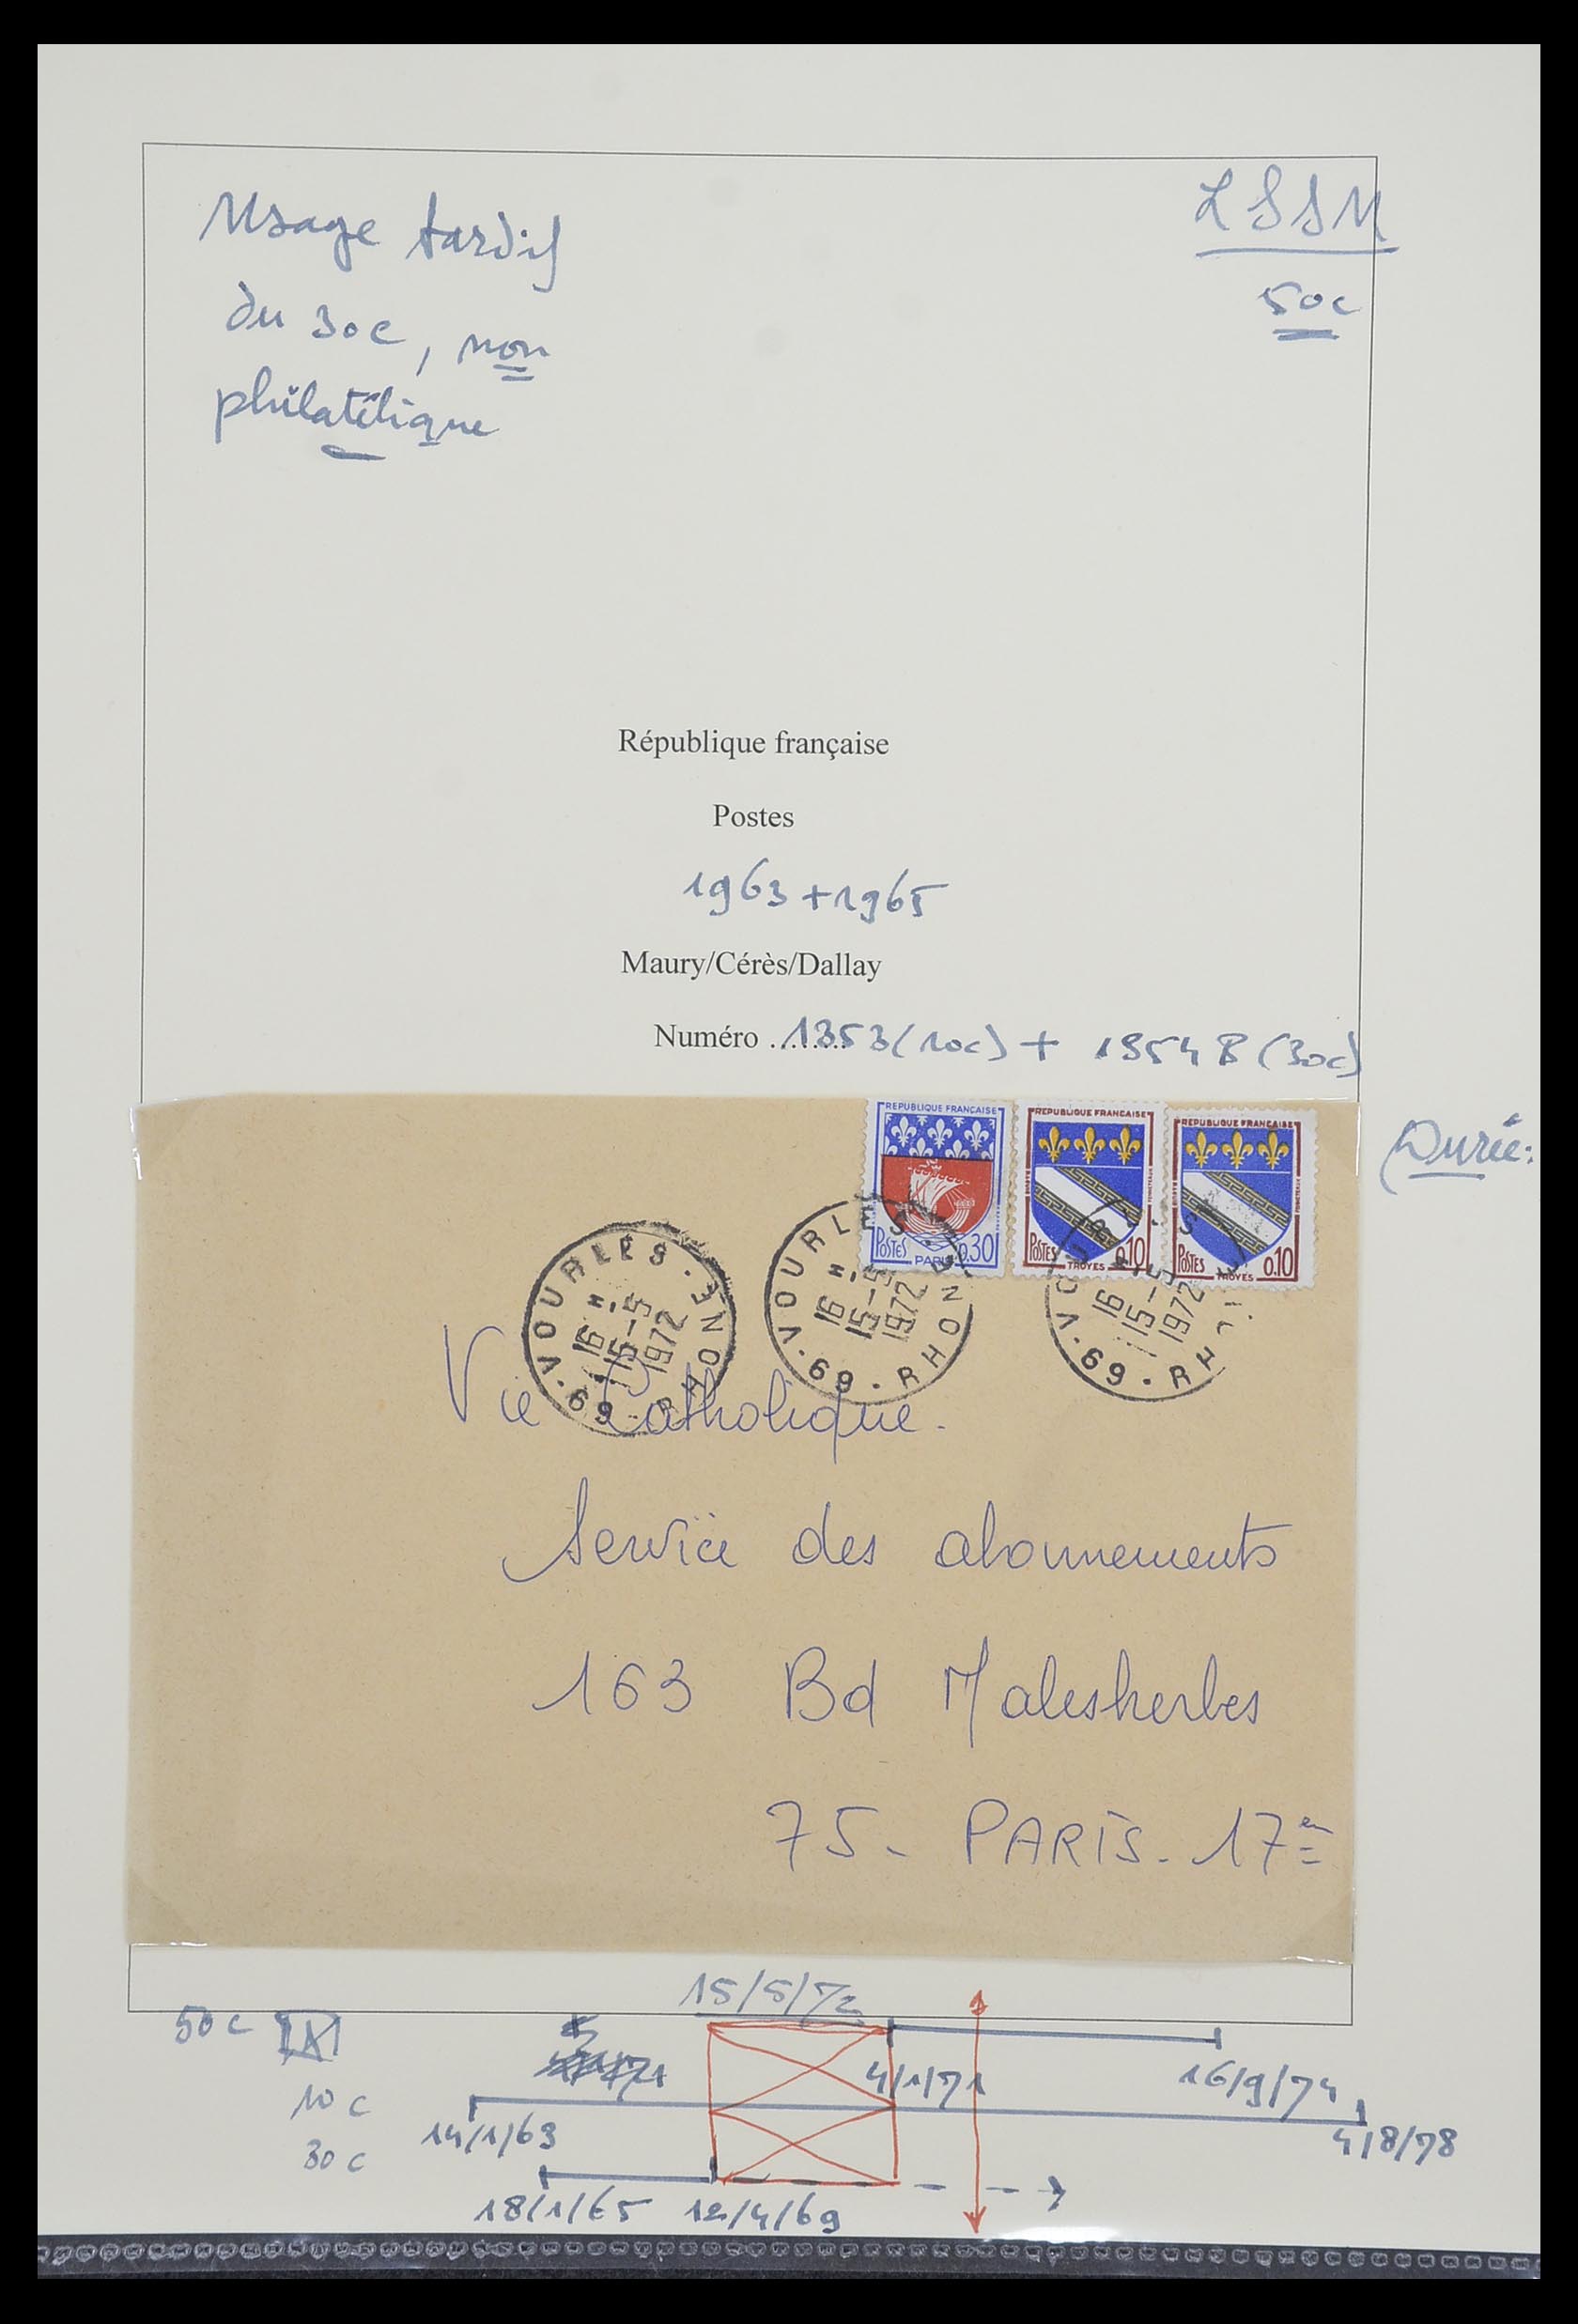 Usage tardif
du 30c, non
philatélique
LSSM
50c
République française
Postes
1963 + 1965
Maury/Cérès/Dallay
Numéro ........ 1353 (10c) + 1354 B (30c)
Durée:
REPUBLIQUE FRANÇAISE
POSTES
PARIS
0,30
REPUBLIQUE FRANÇAISE
POSTES
TROYES
0,10
REPUBLIQUE FRANÇAISE
POSTES
TROYES
0,10
VOURLES · RHONE · 69 ·
16 H
15-5
1972
VOURLES · RHONE · 69 ·
16 H
15-5
1972
16
15-5
1972
Vie Catholique.
Service des abonnements
163 Bd Malesherbes
75- PARIS. 17e
15/5/72
50 c
4/1/71
16/9/74
10 c
14/1/63
4/8/78
30 c
18/1/65
12/4/69